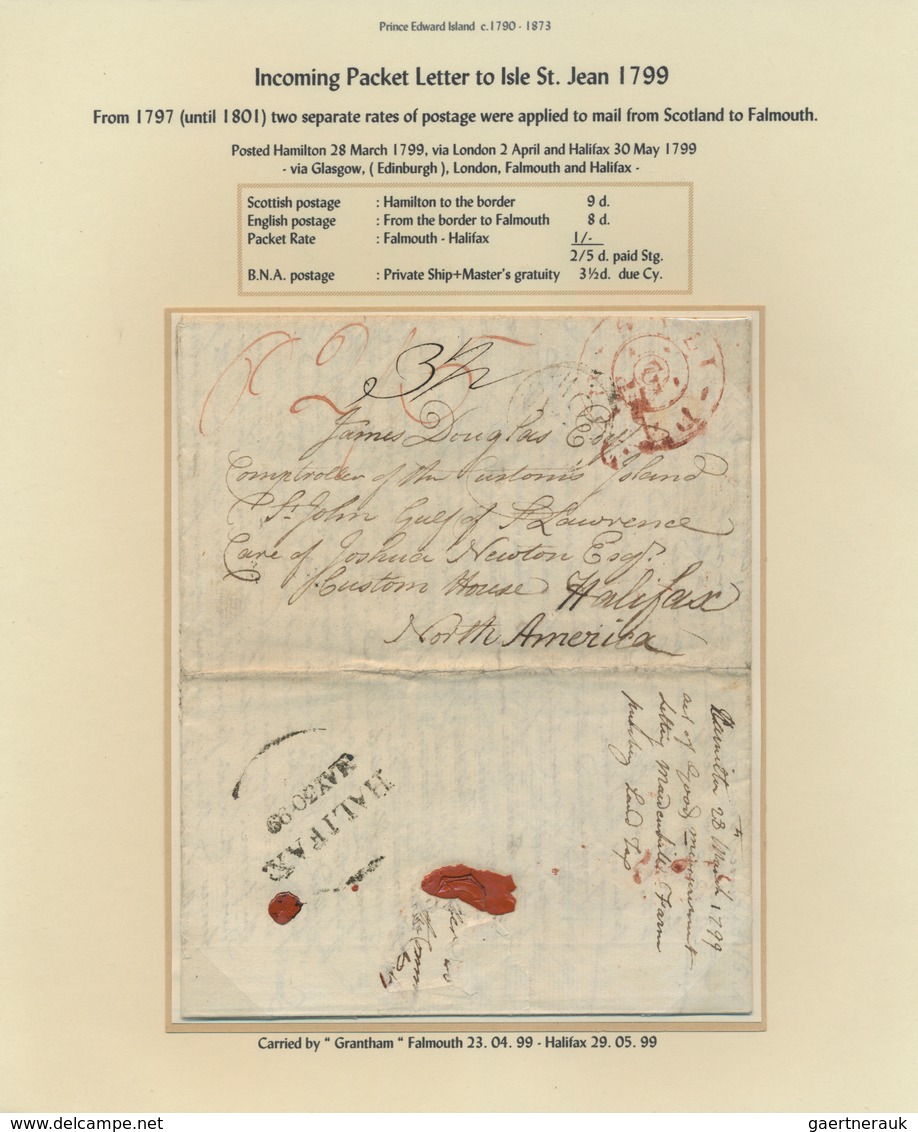 Prince Edward Island c.1790 - 1873
Incoming Packet Letter to Isle St. Jean 1799
From 1797 (until 1801) two separate rates of postage were applied to mail from Scotland to Falmouth.
Posted Hamilton 28 March 1799, via London 2 April and Halifax 30 May 1799
- via Glasgow, ( Edinburgh ), London, Falmouth and Halifax -
Scottish postage : Hamilton to the border 9 d.
English postage : From the border to Falmouth 8 d.
Packet Rate : Falmouth - Halifax 1/-
2/5 d. paid Stg.
B.N.A. postage : Private Ship+Master's gratuity 3½d. due Cy.
2/5
3½
James Douglas Esqr
Comptroller of the Customs Island
St. John Gulf of St Lawrence
Care of Joshua Newton Esqr.
Custom House Halifax
North America
HALIFAX
MAY 30 99
Hamilton 28th March 1799
letting Farm
Land Tax
Carried by " Grantham " Falmouth 23. 04. 99 - Halifax 29. 05. 99
gaertnerauk